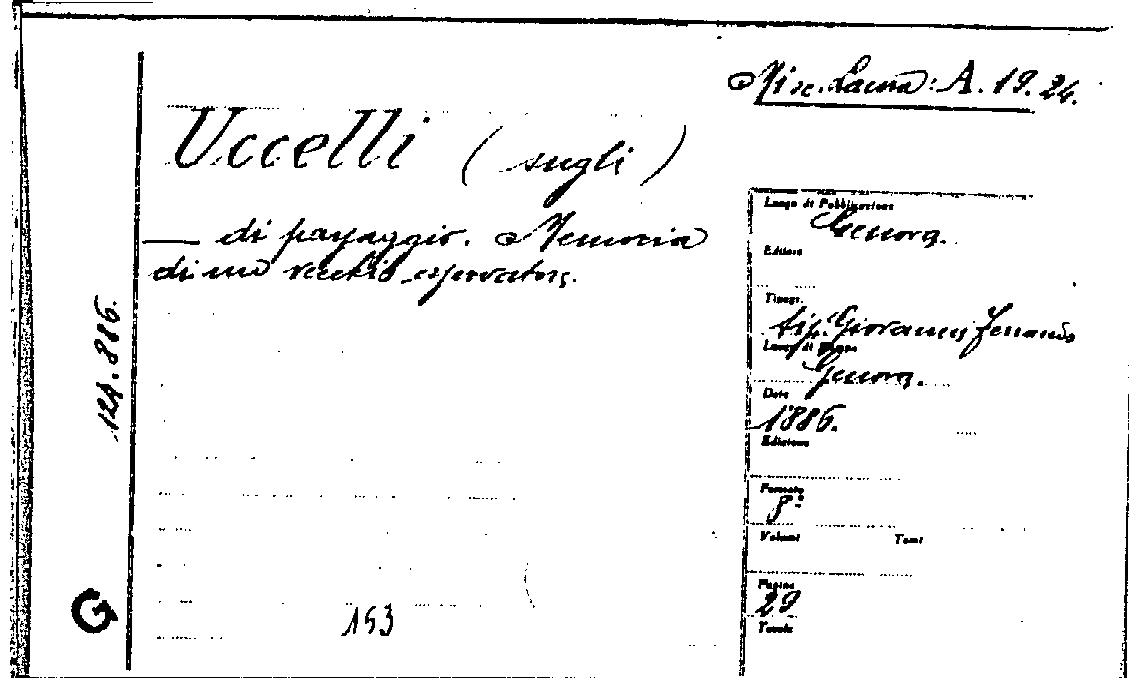 Misc. Lacna: A. 19. 24.
Uccelli (sugli)
— di passaggio. Memoria
di un vecchio osservatore.
124.886.
G
153
Luogo di Pubblicazione
Genova.
Editore
Tipogr.
tip. Giovanni Ferrando
Luogo di Stampa
Genova.
Data
1886.
Edizione
Formato
8°
Volumi Tomi
Pagine
29
Tavole